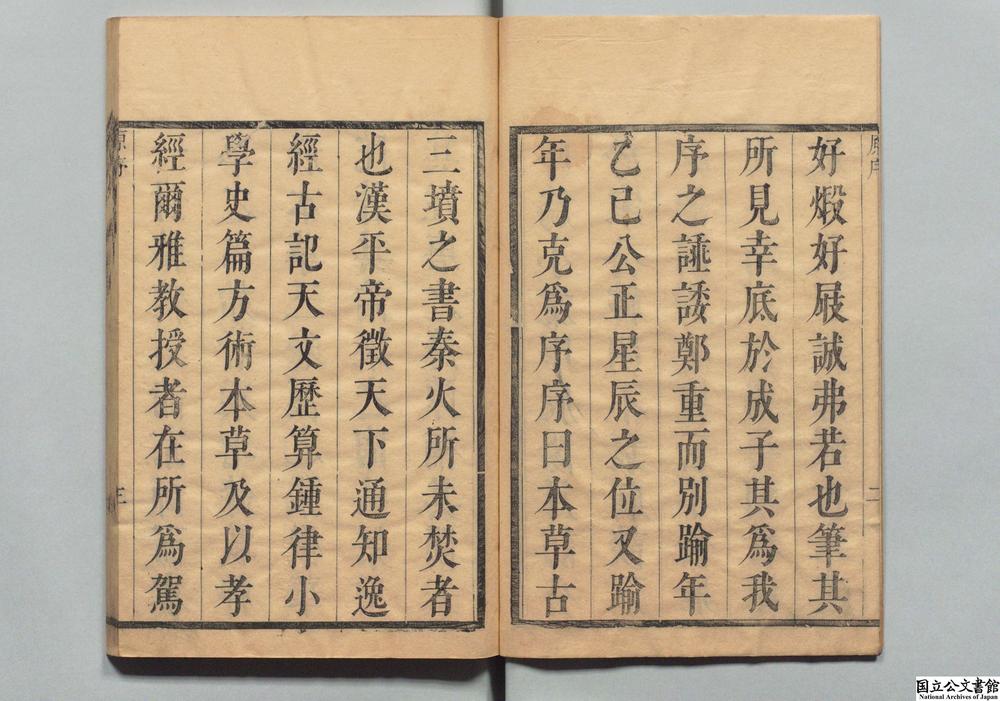 好煅好屐誠弗若也筆其
所見幸底於成子其為我
序之諈諉鄭重而別踰年
乙巳公正星辰之位又踰
年乃克為序序曰本草古
三墳之書秦火所未焚者
也漢平帝徵天下通知逸
經古記天文歷算鍾律小
學史篇方術本草及以孝
經爾雅教授者在所為駕
国立公文書館
National Archives of Japan